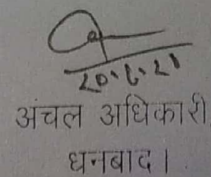 20.6.21
अंचल अधिकारी
धनबाद।